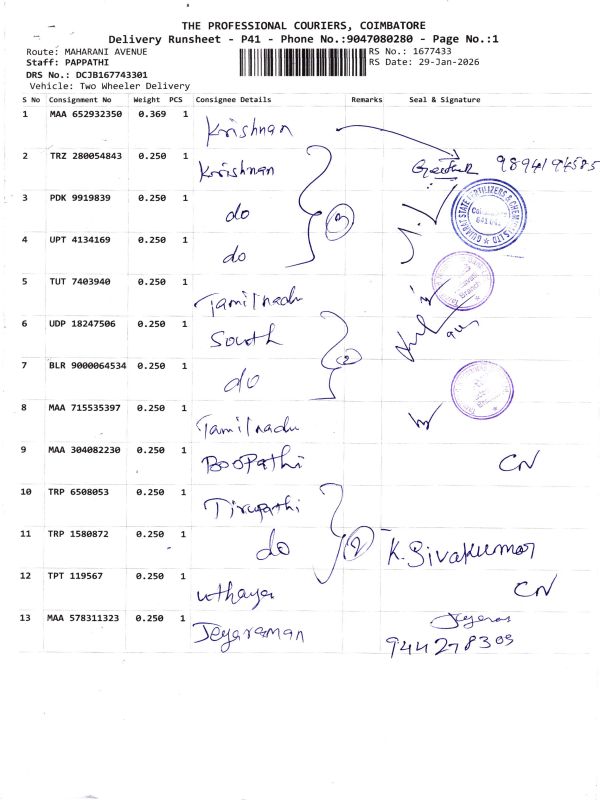 THE PROFESSIONAL COURIERS, COIMBATORE
Delivery Runsheet - P41 - Phone No.:9047080280 - Page No.:1
Route: MAHARANI AVENUE
RS No.: 1677433
Staff: PAPPATHI
RS Date: 29-Jan-2026
DRS No.: DCJB167743301
Vehicle: Two Wheeler Delivery
S No Consignment No Weight PCS Consignee Details Remarks Seal & Signature
1 MAA 652932350 0.369 1 Krishnan
2 TRZ 280054843 0.250 1 Krishnan
3 PDK 9919839 0.250 1 do
4 UPT 4134169 0.250 1 do
3
5 TUT 7403940 0.250 1 Tamilnadu
6 UDP 18247506 0.250 1 South
7 BLR 9000064534 0.250 1 do
2
8 MAA 715535397 0.250 1 Tamilnadu
9 MAA 304082230 0.250 1 BooPathi CN
10 TRP 6508053 0.250 1 Tirupathi
11 TRP 1580872 0.250 1 do 2 K. Sivakumar
12 TPT 119567 0.250 1 uthaya CN
13 MAA 578311323 0.250 1 Jeyaraman
944278309